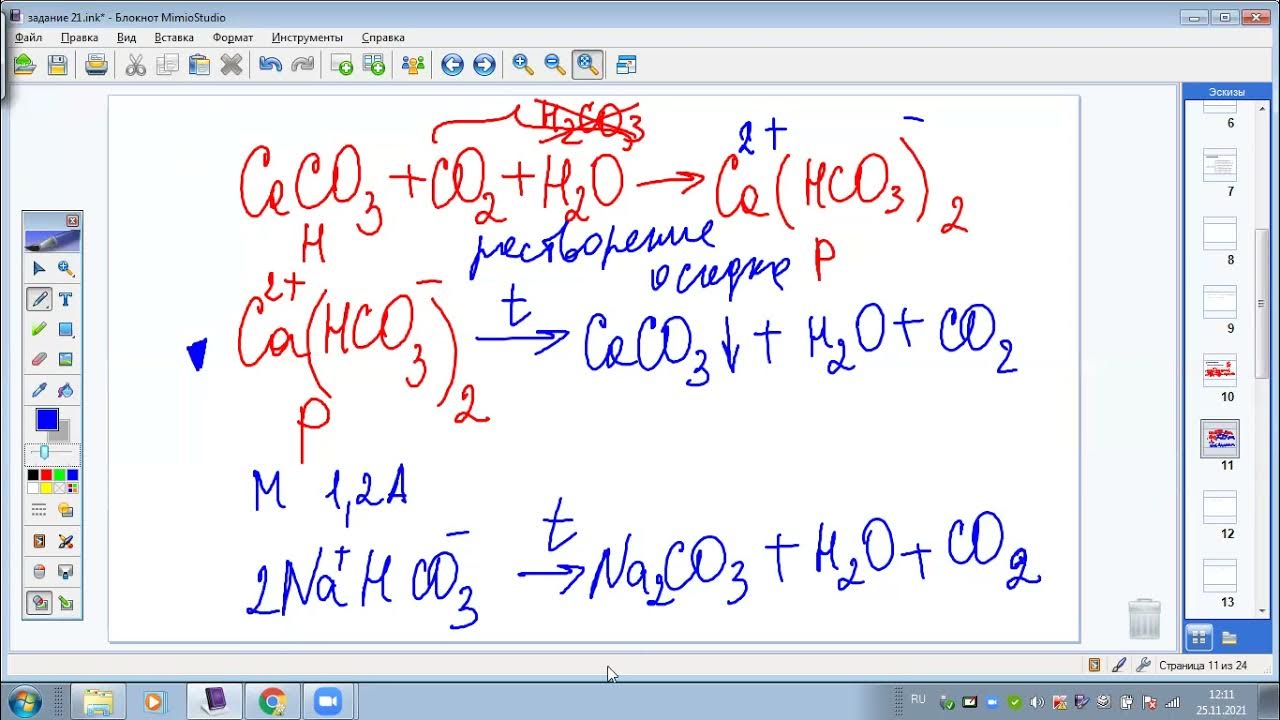 задание 21.ink* - Блокнот MimioStudio
Файл Правка Вид Вставка Формат Инструменты Справка
Эскизы
H₂CO₃
CaCO₃ + CO₂ + H₂O → Ca²⁺(HCO₃⁻)₂
Н растворение осадка Р
Ca²⁺(HCO₃⁻)₂ t→ CaCO₃↓ + H₂O + CO₂
Р
М 1,2А
2Na⁺HCO₃⁻ t→ Na₂CO₃ + H₂O + CO₂
6
7
8
9
10
11
12
13
Страница 11 из 24
RU
12:11
25.11.2021